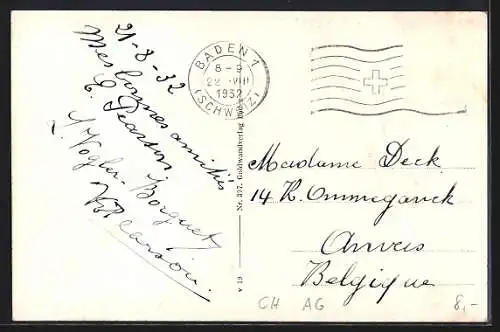 21-8-32
Mes bonnes amitiés
C. Pearson
Vogler-Borguet
Pearson.
BADEN 1
8-9
22. VIII
1932
(SCHWEIZ)
Nr. 337. Goldwandverlag
V 13
Madame Deck
14 R. Ommeganck
Anvers
Belgique
CH AG
8,-